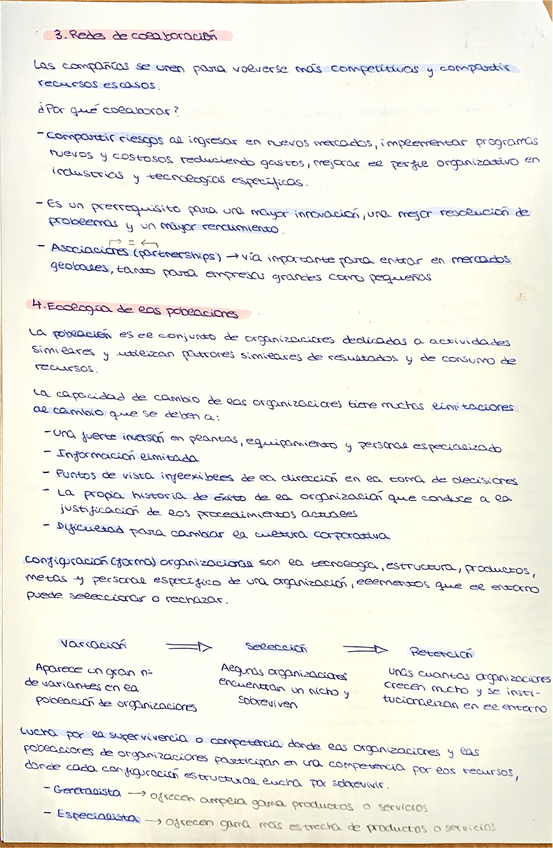 3. Redes de colaboración
Las compañías se unen para volverse más competitivas y compartir
recursos escasos.
¿Por qué colaborar?
- Compartir riesgos al ingresar en nuevos mercados, implementar programas
nuevos y costosos reduciendo gastos, mejorar el perfil organizativo en
industrias y tecnologías específicas.
- Es un prerrequisito para una mayor innovación, una mejor resolución de
problemas y un mayor rendimiento.
- Asociaciones (partnerships) → vía importante para entrar en mercados
globales, tanto para empresas grandes como pequeñas
4. Ecología de las poblaciones
La población es el conjunto de organizaciones dedicadas a actividades
similares y utilizan patrones similares de resultados y de consumo de
recursos.
La capacidad de cambio de las organizaciones tiene muchas limitaciones
al cambio que se deben a:
- Una fuerte inversión en plantas, equipamiento y personal especializado
- Información limitada
- Puntos de vista inflexibles de la dirección en la toma de decisiones
- La propia historia de éxito de la organización que conduce a la
justificación de los procedimientos actuales
- Dificultad para cambiar la cultura corporativa
Configuración (forma) organizacional son la tecnología, estructura, productos,
metas y personal específico de una organización, elementos que el entorno
puede seleccionar o rechazar.
Variación ⇒ Selección ⇒ Retención
Aparece un gran nº
de variantes en la
población de organizaciones
Algunas organizaciones
encuentran un nicho y
sobreviven
Unas cuantas organizaciones
crecen mucho y se insti-
tucionalizan en el entorno
Lucha por la supervivencia o competencia donde las organizaciones y las
poblaciones de organizaciones participan en una competencia por los recursos,
donde cada configuración estructural lucha por sobrevivir.
- Generalista → ofrecen amplia gama productos o servicios
- Especialista → ofrecen gama más estrecha de productos o servicios